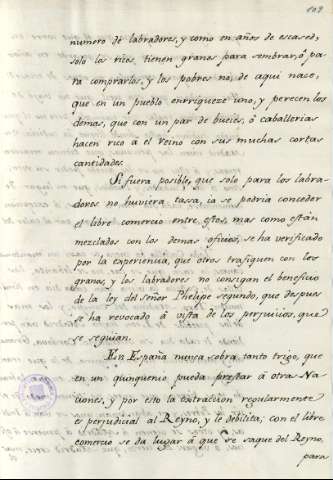 109
numero de labradores, y como en años de escased,
solo los ricos tienen granos para sembrar, ó pa
ra comprarlos, y los pobres no, de aqui nase,
que en un pueblo enrriqueze uno, y perecen los
demas, que con un par de bueies, ó caballerias
hacen rico a el Reino con sus muchas cortas
cantidades.
Si fuera posible, que solo para los labra-
dores no huviera tassa, ia se podria conceder
el libre comercio entre estos, mas como están
mezclados con los demas oficios, se ha verificado
por la experiencia, que otros trafiquen con los
granos, y los labradores no consigan el beneficio
de la ley del señor Phelipe segundo, que despues
se ha revocado á vista de los perjuicios, que
se seguian.
En España nunca sobra tanto trigo, que
en un quinquenio pueda prestar á otras Na
ciones, y por esto la extraccion regularmente
es perjudicial al Reyno, y le debilita; con el libre
comercio se da lugar á que se saque del Reyno,
para